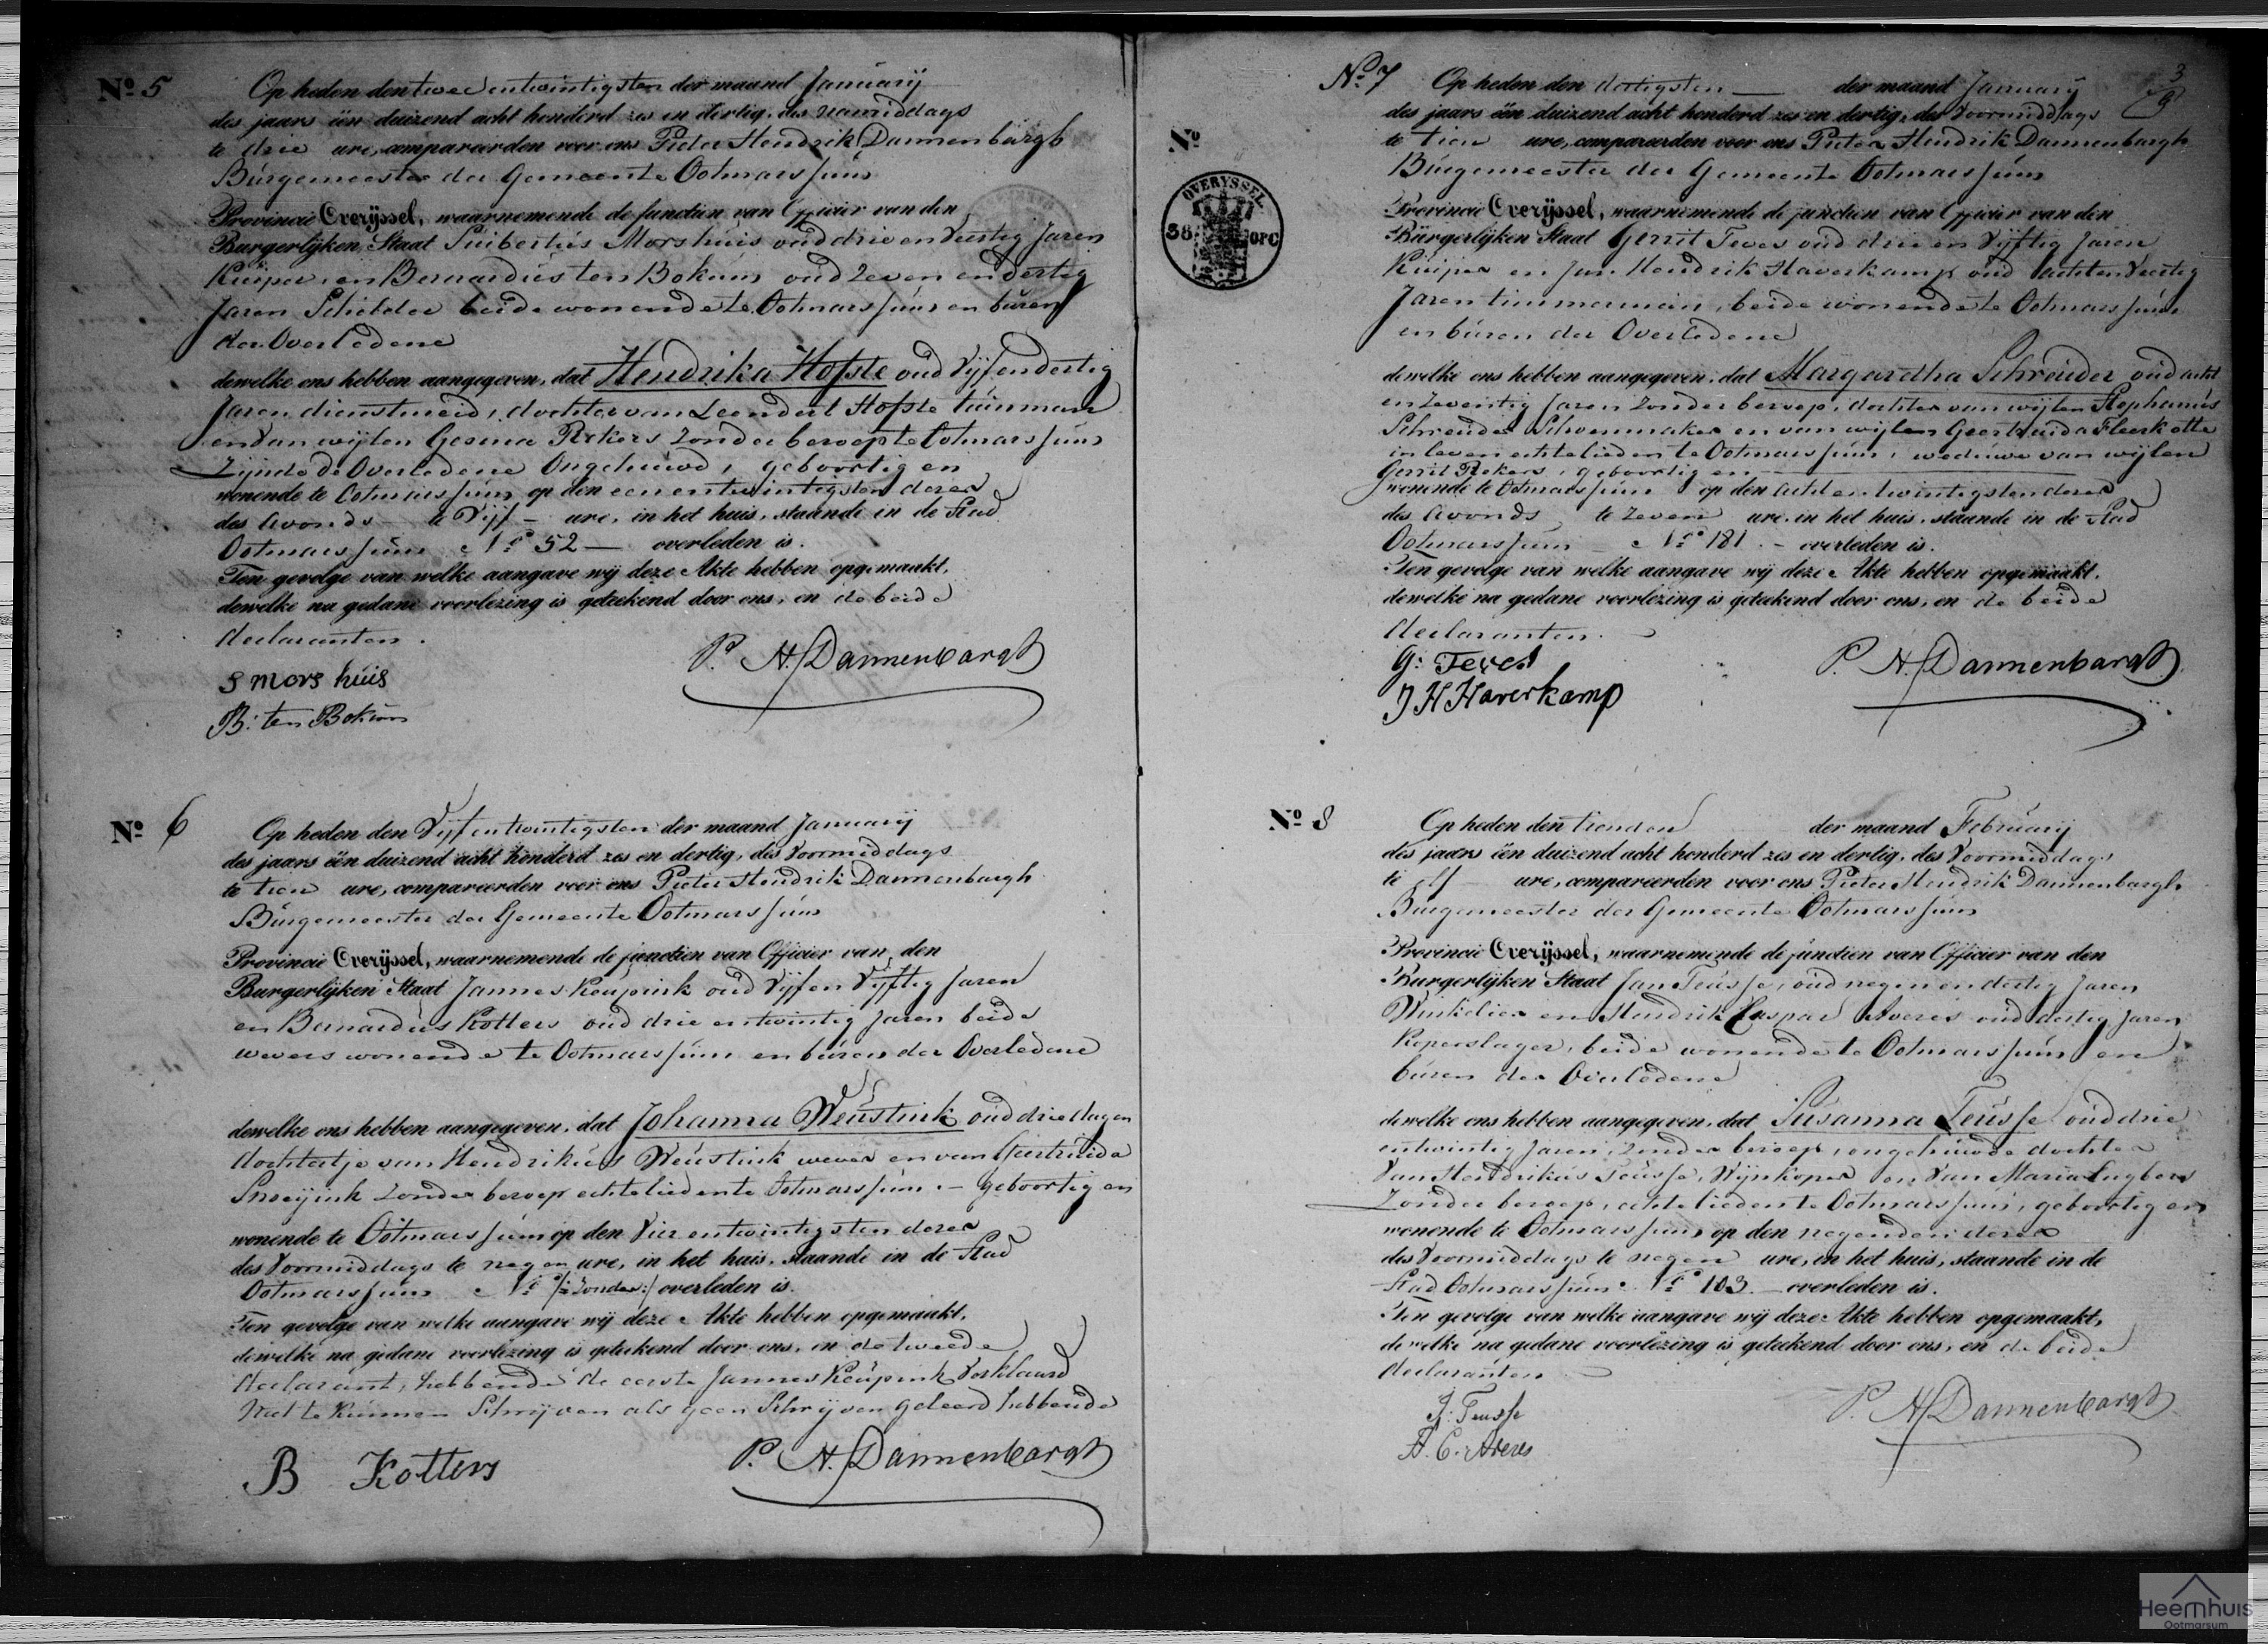 Nº 5
Op heden den twee entwintigsten der maand Januarij
des jaars één duizend acht honderd zes en dertig, des namiddags
te drie ure, compareerden voor ons Pieter Hendrik Dannenbargh
Burgemeester der Gemeente Ootmarssum
Provincie Overijssel, waarnemende de functien van Officier van den
Burgerlijken Staat Suibertus Morshuis oud drie en Veertig Jaren
Kuiper, en Bernardus ten Bokum oud Zeven en dertig
Jaren Schilder beide wonende te Ootmarssum en buren
der Overledene
dewelke ons hebben aangegeven, dat Hendrika Hofste oud Vijf en dertig
Jaren dienstmeid, dochter van Leendert Hofste tuinman
en Van wijlen Gesina Rekers Zonder beroep te Ootmarssum
Zijnde de Overledene Ongehuwd, geboortig en
wonende te Ootmarssum op den een entwintigsten dezer
des Avonds te Vijf ure, in het huis, staande in de Stad
Ootmarssum Nº 52 overleden is.
Ten gevolge van welke aangave wij deze Akte hebben opgemaakt,
dewelke na gedane voorlezing is geteekend door ons, en de beide
declaranten.
S Mors huis
P. H. Dannenbargh
B: ten Bokum
Nº 6
Op heden den Vijf entwintigsten der maand Januarij
des jaars één duizend acht honderd zes en dertig, des Voormiddags
te tien ure, compareerden voor ons Pieter Hendrik Dannenbargh
Burgemeester der Gemeente Ootmarssum
Provincie Overijssel, waarnemende de functien van Officier van den
Burgerlijken Staat Jannes Keupink oud Vijf en Vijftig Jaren
en Bernardus Kotters oud drie entwintig Jaren beide
wevers wonende te Ootmarssum en buren der Overledene
dewelke ons hebben aangegeven, dat Johanna Weustink oud drie dagen
dochtertje van Hendrikus Weustink wever en van Geertruida
Snoeyink Zonder beroep echtelieden te Ootmarssum. geboortig en
wonende te Ootmarssum op den Vier entwintigsten dezer
des Voormiddags te negen ure, in het huis, staande in de Stad
Ootmarssum Nº /:Zonder:/ overleden is.
Ten gevolge van welke aangave wij deze Akte hebben opgemaakt,
dewelke na gedane voorlezing is geteekend door ons, en de tweede
declarant, hebbende de eerste Jannes Keupink Verklaard
Niet te kunnen Schrijven als geen Schrijven geleerd hebbende
B Kotters
P. H. Dannenbargh
3
Nº 7
Op heden den dertigsten der maand Januarij
des jaars één duizend acht honderd zes en dertig, des Voormiddags
te tien ure, compareerden voor ons Pieter Hendrik Dannenbargh
Burgemeester der Gemeente Ootmarssum
Nº
OVERYSSEL
38
OPC
Provincie Overijssel, waarnemende de functien van Officier van den
Bürgerlijken Staat Gerrit Teves oud drie en Vijftig Jaren
Kuiper en Jan Hendrik Haverkamp oud achten Veertig
Jaren timmerman, beide wonende te Ootmarssum
en buren der Overledene
dewelke ons hebben aangegeven, dat Margaretha Schreuder oud acht
en Zeventig Jaren Zonder beroep, dochter van wijlen Stephanus
Schreuder Schoenmaker en van wijlen Geertruida Fleerkotte
in leven echtelieden te Ootmarssum, weduwe van wijlen
Gerrit Rekers, geboortig en
wonende te Ootmarssum op den acht entwintigsten dezer
des Avonds te Zeven ure, in het huis, staande in de Stad
Ootmarssum Nº 181. overleden is.
Ten gevolge van welke aangave wij deze Akte hebben opgemaakt,
dewelke na gedane voorlezing is geteekend door ons, en de beide
declaranten.
G: Teves
P. H. Dannenbargh
J H Haverkamp
Nº 8
Op heden den tienden der maand Februarij
des jaars één duizend acht honderd zes en dertig, des Voormiddags
te elf ure, compareerden voor ons Pieter Hendrik Dannenbargh
Burgemeester der Gemeente Ootmarssum
Provincie Overijssel, waarnemende de functien van Officier van den
Burgerlijken Staat Jan Teusse, oud negen en dertig Jaren
Winkelier en Hendrik Caspar Averes oud dertig Jaren
Koperslager, beide wonende te Ootmarssum en
buren der Overledene
dewelke ons hebben aangegeven, dat Susanna Teusse oud drie
entwintig Jaren, Zonder beroep, ongehuwde dochter
Van Hendrikus Teusse, Wijnkoper en Van Maria Lugbers
Zonder beroep, echtelieden te Ootmarssum, geboortig en
wonende te Ootmarssum op den negenden dezer
des Voormiddags te negen ure, in het huis, staande in de
Stad Ootmarssum Nº 103. overleden is.
Ten gevolge van welke aangave wij deze Akte hebben opgemaakt,
dewelke na gedane voorlezing is geteekend door ons, en de beide
declaranten
J: Teusse
P. H. Dannenbargh
H. C. Averes
Heemhuis
Ootmarsum